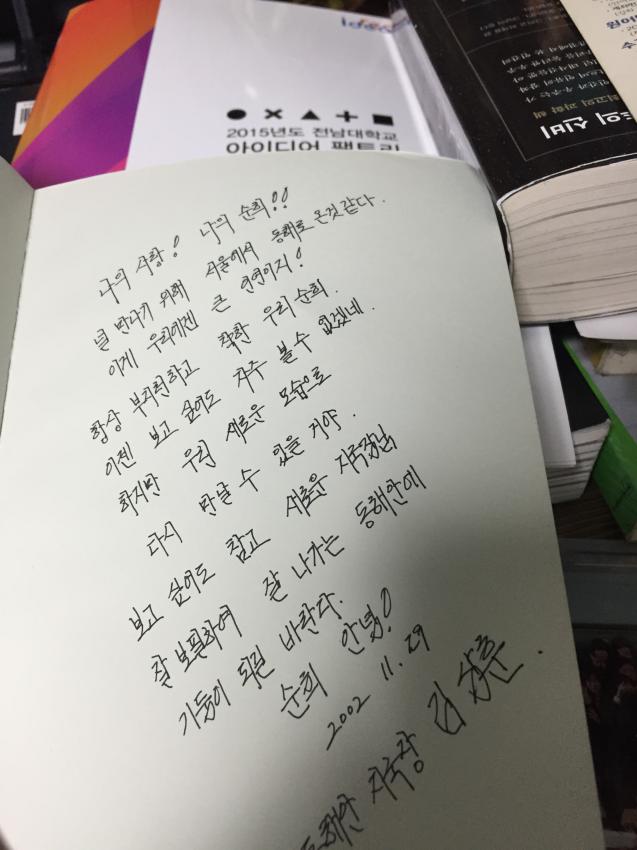 idea
2015년도 전남대학교
아이디어 팩토리
최고의 과학 책
의 신비
원이
나의 사랑! 나의 순희!!
널 만나기 위해 서울에서 동해로 온것 같다.
이게 우리에겐 큰 인연이지!
항상 부지런하고 착한 우리 순희.
이젠 보고 싶어도 자주 볼 수 없겠네.
하지만 우린 새로운 모습으로
다시 만날 수 있을 거야.
보고 싶어도 참고 새로운 지국장님
잘 보필하여 잘 나가는 동해안에
기둥이 되길 바란다.
순희 안녕!
2002 11. 29
동해안 지국장 김